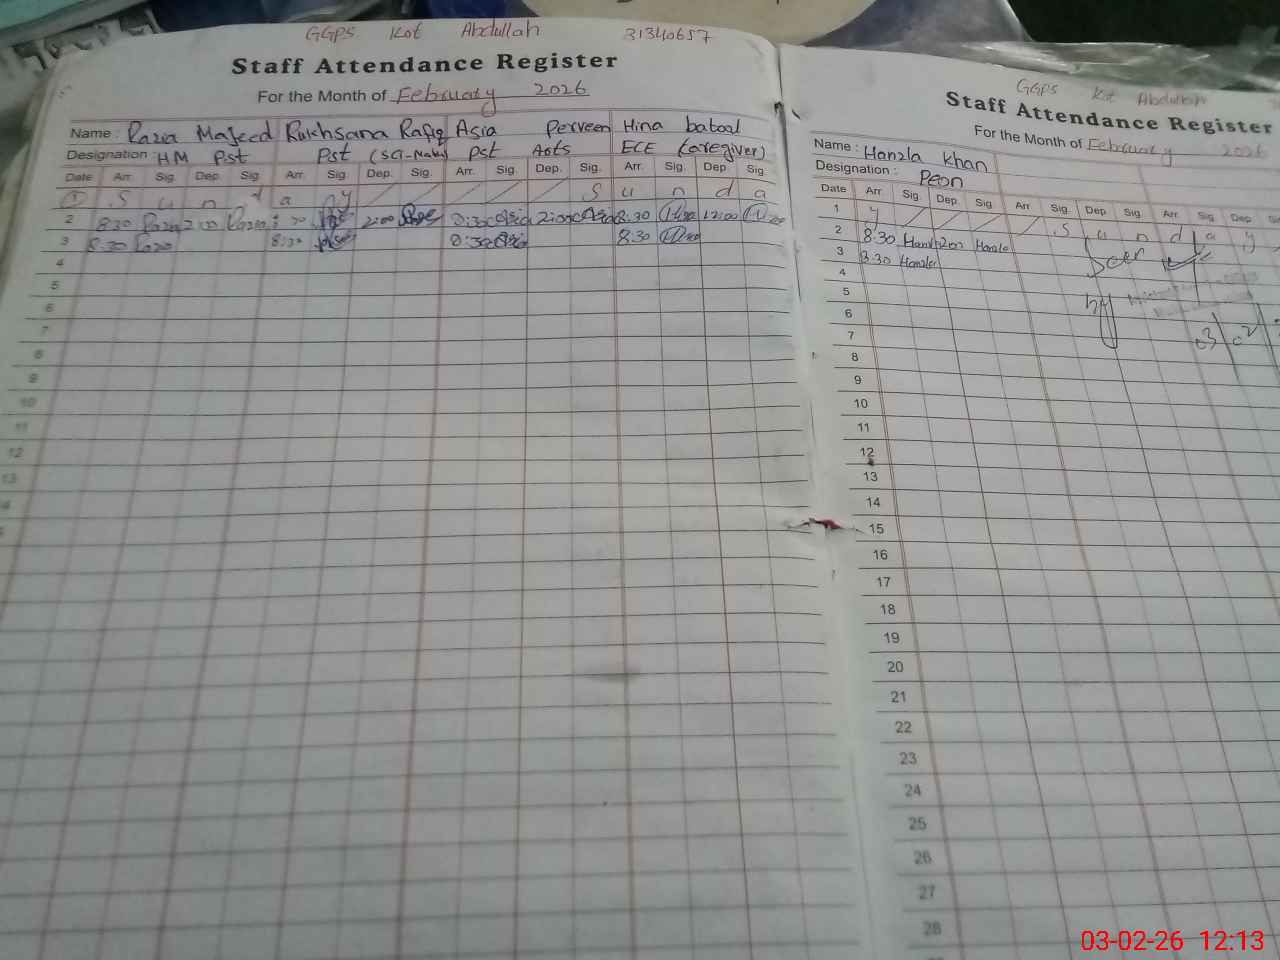 GGPS Kot Abdullah 31340657
Staff Attendance Register
For the Month of February 2026
Name : Razia Majeed Rukhsana Rafiq Asia Perveen Hina batool
Designation : HM Pst Pst (SCI-Math) Pst Arts ECE (Caregiver)
Date Arr. Sig. Dep. Sig. Arr. Sig. Dep. Sig. Arr. Sig. Dep. Sig. Arr. Sig. Dep. Sig.
1 S u n d a y S u n d a
2 8:30 Razia 2:00 Razia 2:00 8:30 12:00
3 8:30 Razia 8:30 8:30
4
5
6
7
8
9
10
11
12
13
GGPS Kot Abdullah
Staff Attendance Register
For the Month of February 2026
Name : Hanzla khan
Designation : Peon
Date Arr. Sig. Dep. Sig. Arr. Sig. Dep. Sig. Arr. Sig. Dep.
1 y S u n d a y
2 8:30 Hanzla 2:00 Hanzla
3 8:30 Hanzla
Seen
4
5
by
6
03/02
7
8
9
10
11
12
13
14
15
16
17
18
19
20
21
22
23
24
25
26
27
28
03-02-26 12:13